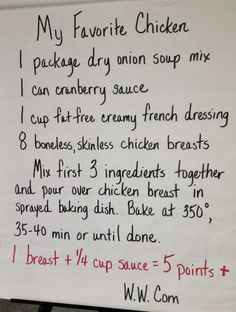 My Favorite Chicken
1 package dry onion soup mix
1 can cranberry sauce
1 cup fat free creamy french dressing
8 boneless, skinless chicken breasts
Mix first 3 ingredients together
and pour over chicken breast in
sprayed baking dish. Bake at 350°,
35-40 min or until done.
1 breast + 1/4 cup sauce = 5 points +
W.W. Com